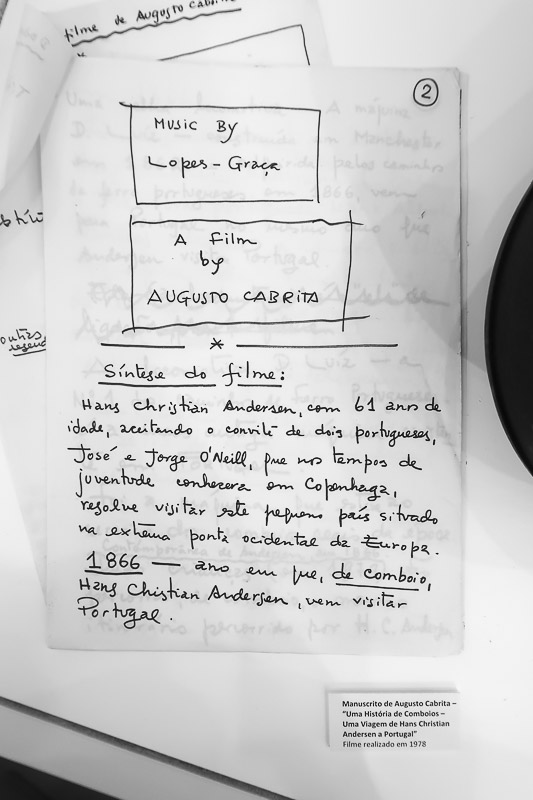 filme de Augusto Cabrita
2
Music By
Lopes-Graça
A Film
by
AUGUSTO CABRITA
*
Síntese do filme:
Hans Christian Andersen, com 61 anos de
idade, aceitando o convite de dois portugueses,
José e Jorge O'Neill, que nos tempos de
juventude conhecera em Copenhaga,
resolve visitar este pequeno país situado
na extrema ponta ocidental da Europa.
1866 — ano em que, de comboio,
Hans Christian Andersen, vem visitar
Portugal.
outras
Manuscrito de Augusto Cabrita –
"Uma História de Comboios –
Uma Viagem de Hans Christian
Andersen a Portugal"
Filme realizado em 1978